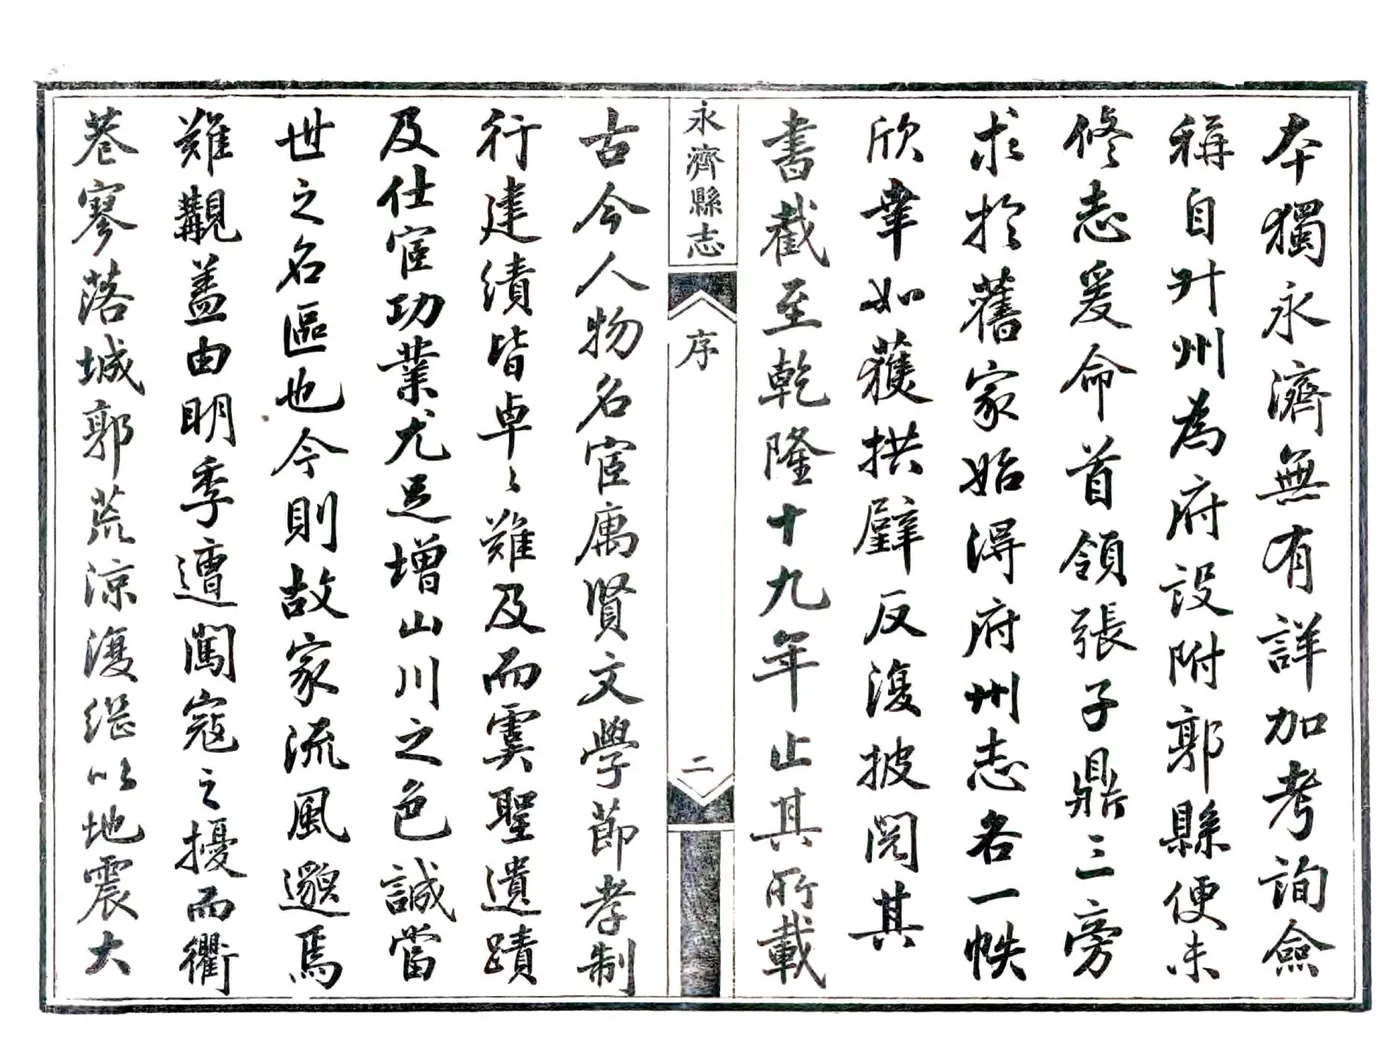 本獨永濟無有詳加考詢僉
稱自升州為府設附郭縣便未
修志爰命首領張子鼎三旁
求於舊家始得府州志各一帙
欣幸如獲拱璧反復披閱其
書截至乾隆十九年止其所載
永濟縣志
序
二
古今人物名宦厲賢文學節孝制
行建績皆卓〻難及而虞聖遺蹟
及仕宦功業尤足增山川之色誠當
世之名區也今則故家流風邈焉
難觀蓋由明季遭闖寇之擾而衢
巷寥落城郭荒涼復繼以地震大